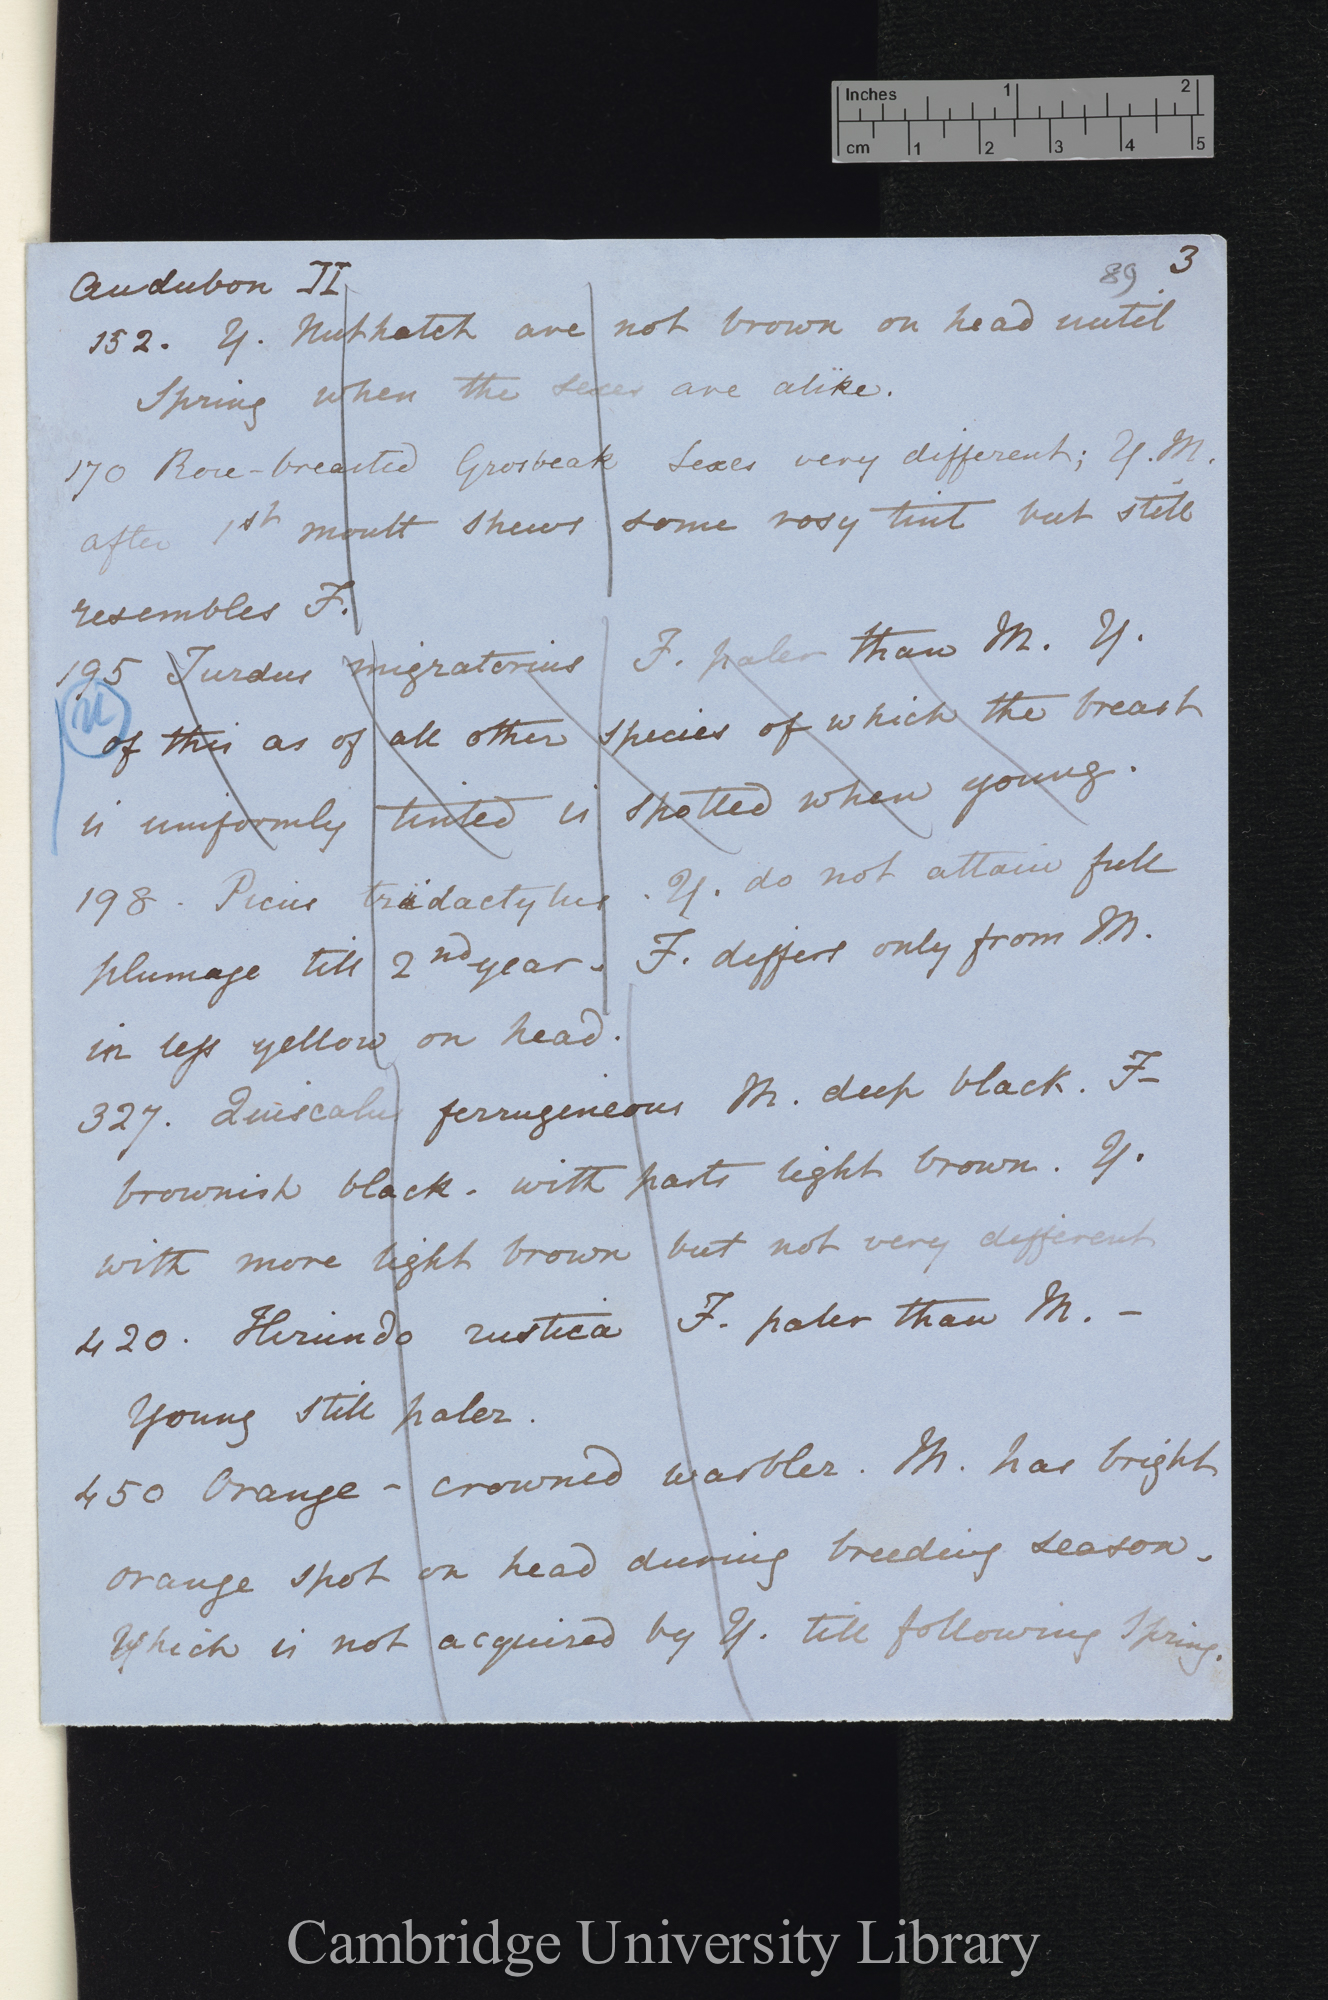 Inches 1 2
cm 1 2 3 4 5
Audubon II 89 3
152. Y. Nuthatch are not brown on head until
Spring when the sexes are alike.
170 Rose-breasted Grosbeak Sexes very different; Y. M.
after 1st moult shews some rosy tint but still
resembles F.
195 Turdus migratorius F. paler than M. Y.
of this as of all other species of which the breast
is uniformly tinted is spotted when young.
198. Picus tridactylus. Y. do not attain full
plumage till 2nd year. F. differs only from M.
in less yellow on head.
327. Quiscalus ferrugineous M. deep black. F-
brownish black. with parts light brown. Y.
with more light brown but not very different
420. Hirundo rustica F. paler than M. -
Young still paler.
450 Orange-crowned warbler. M. has bright
orange spot on head during breeding season.
Which is not acquired by Y. till following Spring.
Cambridge University Library